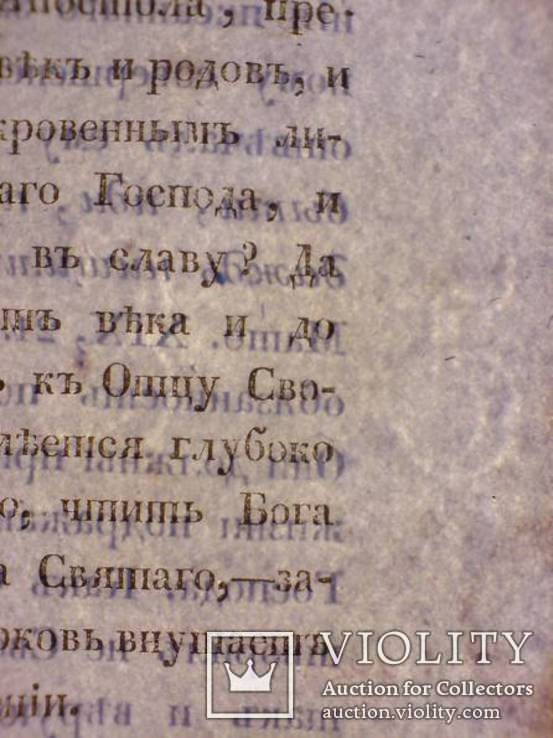 апостола, пре-
вѣкъ и родовъ, и
кровеннымъ ли-
аго Господа, и
въ славу? Да
тъ вѣка и до
ь къ Отцу Сво-
мѣется глубоко
о, чтить Бога
а Святаго,—за-
рковь внушаетъ
ніи.
VIOLITY
Auction for Collectors
auction.violity.com